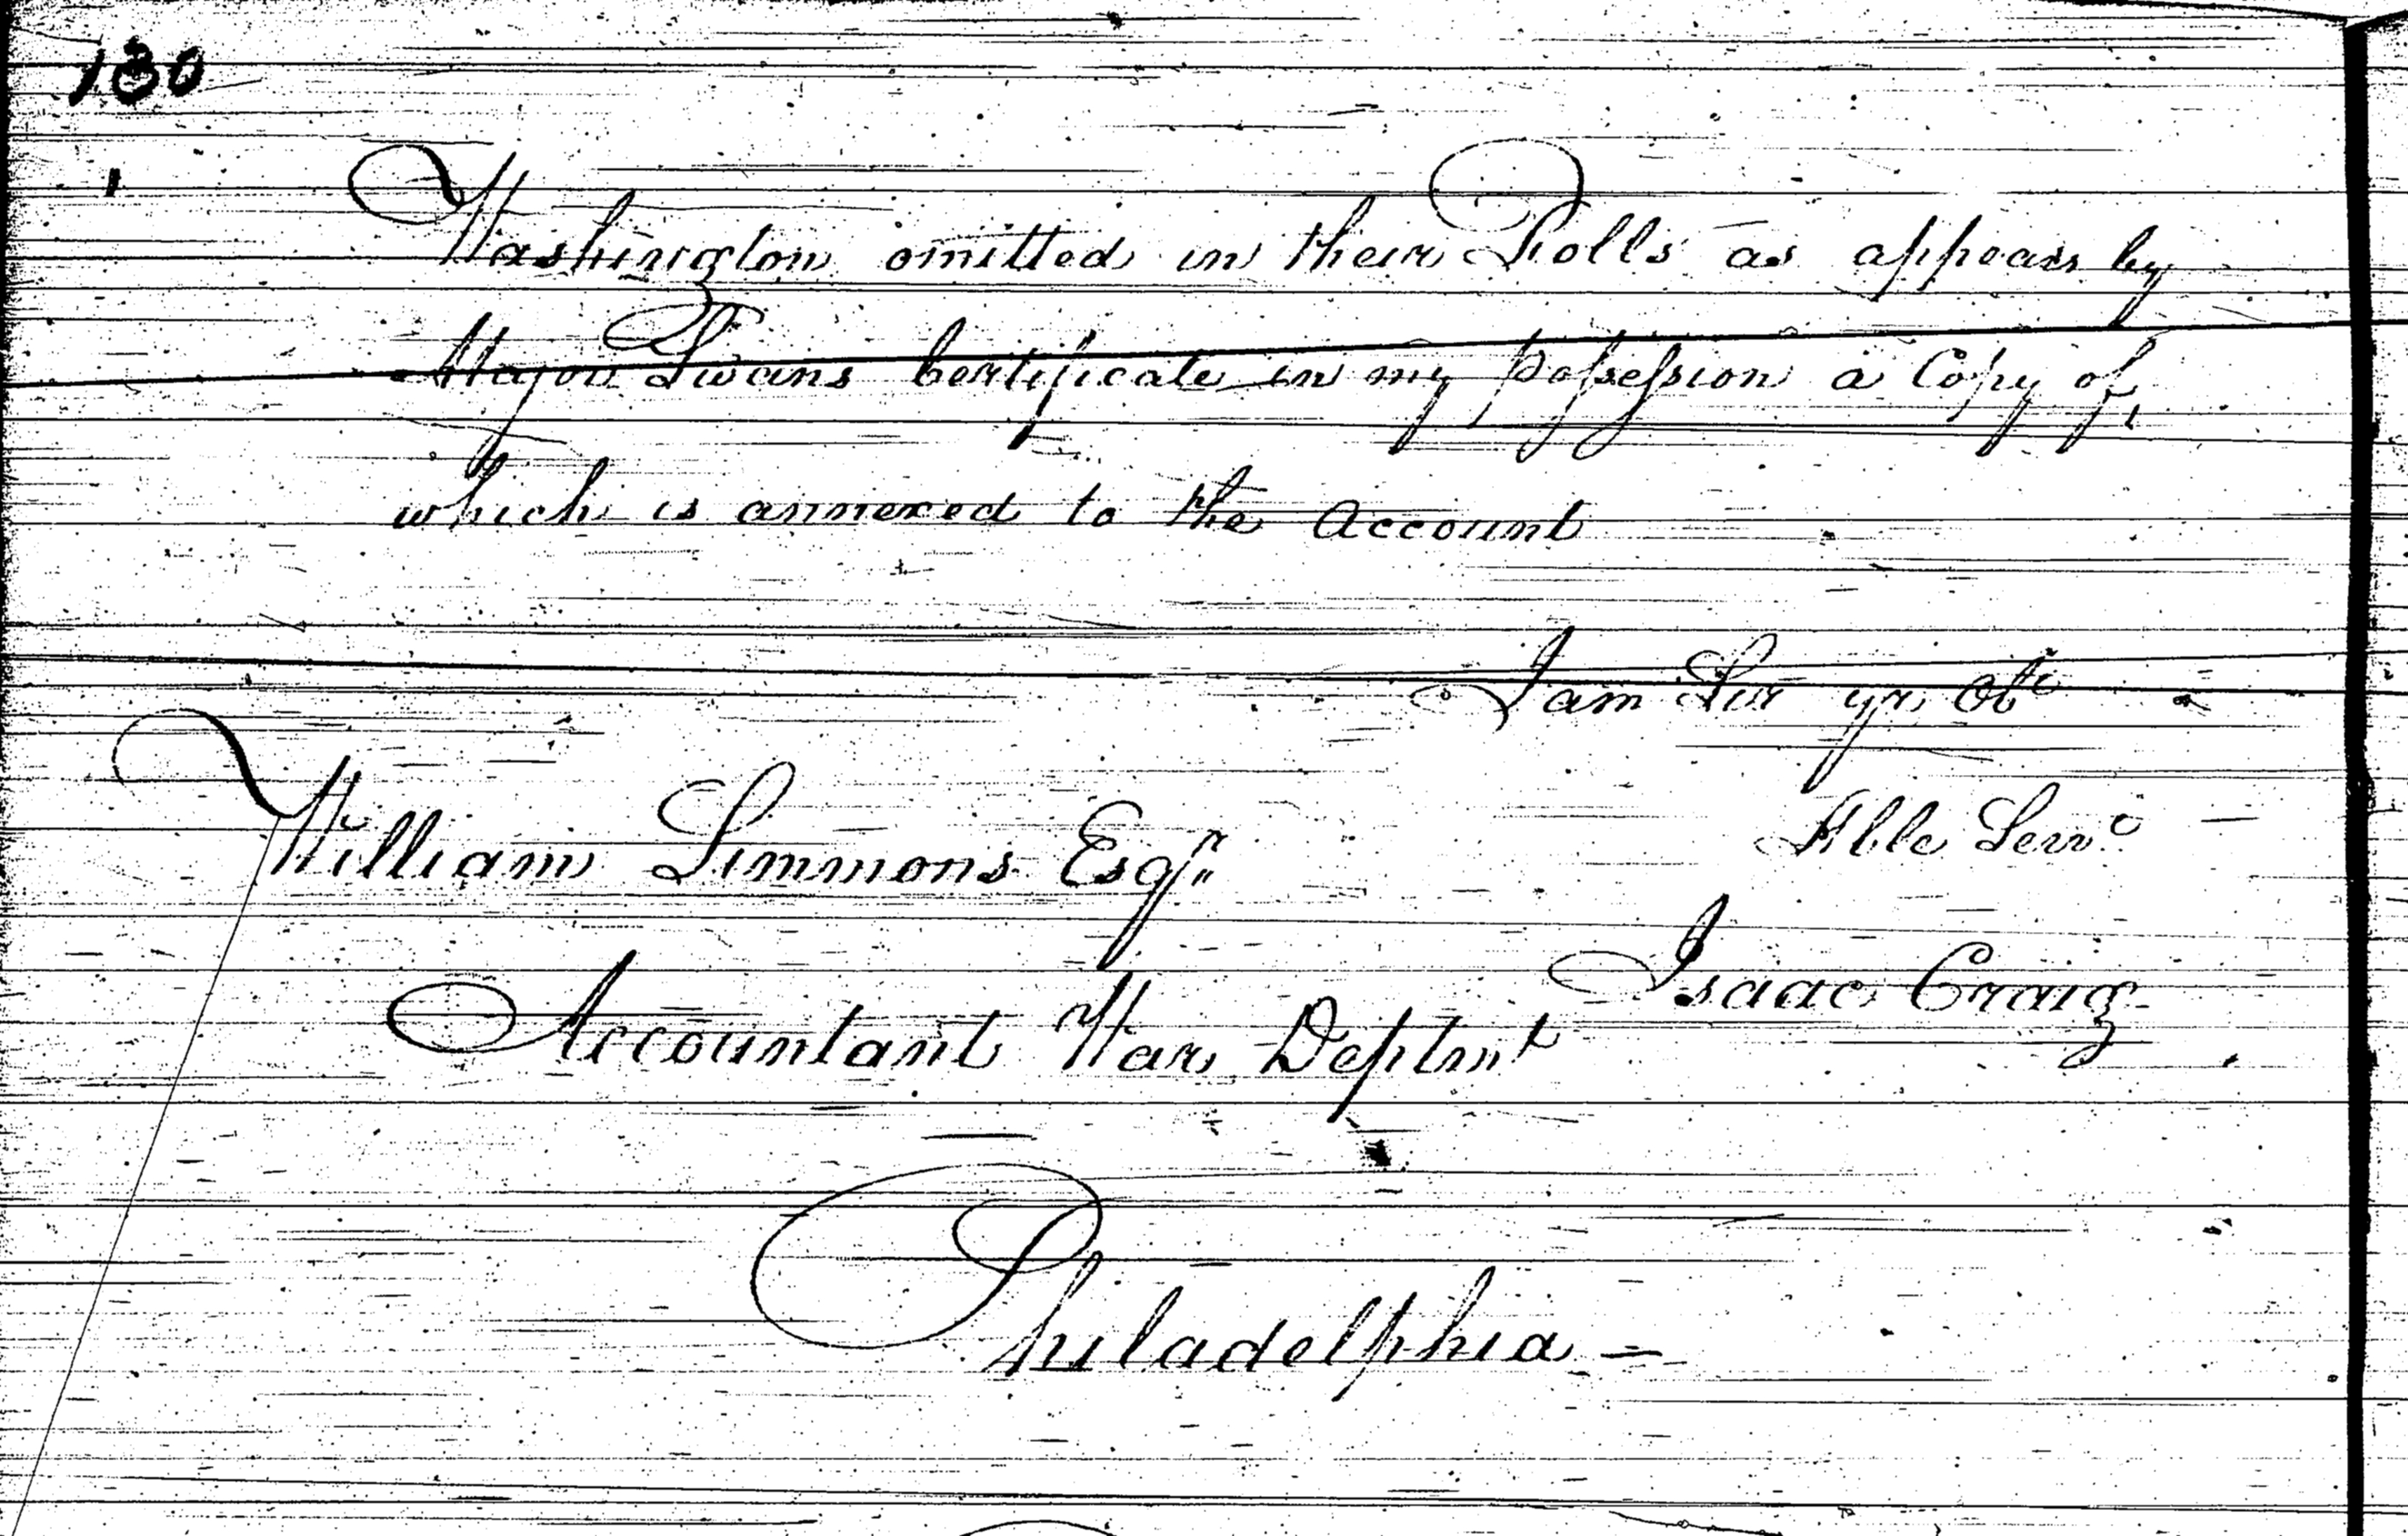 180
Washington omitted in their Rolls as appears by
Major Swans Certificate in my possession a Copy of
which is annexed to the Account
I am Sir yr. Obt
Hble Servt
William Simmons Esqr
Isaac Craig
Accountant War Deptmt
Philadelphia